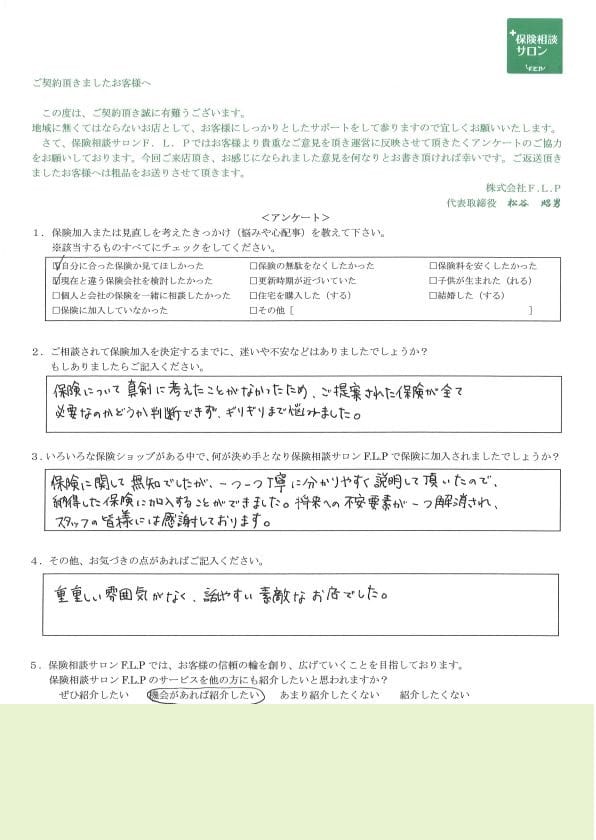 +保険相談
サロン
F.L.P
ご契約頂きましたお客様へ
この度は、ご契約頂き誠に有難うございます。
地域に無くてはならないお店として、お客様にしっかりとしたサポートをして参りますので宜しくお願いいたします。
さて、保険相談サロンF．L．Pではお客様より貴重なご意見を頂き運営に反映させて頂きたくアンケートのご協力
をお願いしております。今回ご来店頂き、お感じになられました意見を何なりとお書き頂ければ幸いです。ご返送頂き
ましたお客様へは粗品をお送りさせて頂きます。
株式会社F．L．P
代表取締役 松谷 昭男
＜アンケート＞
１．保険加入または見直しを考えたきっかけ（悩みや心配事）を教えて下さい。
※該当するものすべてにチェックをしてください。
☑自分に合った保険か見てほしかった □保険の無駄をなくしたかった □保険料を安くしたかった
☑現在と違う保険会社を検討したかった □更新時期が近づいていた □子供が生まれた（れる）
□個人と会社の保険を一緒に相談したかった □住宅を購入した（する） □結婚した（する）
□保険に加入していなかった □その他［ ］
２．ご相談されて保険加入を決定するまでに、迷いや不安などはありましたでしょうか？
もしありましたらご記入ください。
保険について真剣に考えたことがなかったため、ご提案された保険が全て
必要なのかどうか判断できず、ギリギリまで悩みました。
３．いろいろな保険ショップがある中で、何が決め手となり保険相談サロンF.L.Pで保険に加入されましたでしょうか？
保険に関して無知でしたが、一つ一つ丁寧に分かりやすく説明して頂いたので、
納得した保険に加入することができました。将来への不安要素が一つ解消され、
スタッフの皆様には感謝しております。
４．その他、お気づきの点があればご記入ください。
重重しい雰囲気がなく、話やすい素敵なお店でした。
５．保険相談サロンF.L.Pでは、お客様の信頼の輪を創り、広げていくことを目指しております。
保険相談サロンF.L.Pのサービスを他の方にも紹介したいと思われますか？
ぜひ紹介したい 機会があれば紹介したい あまり紹介したくない 紹介したくない